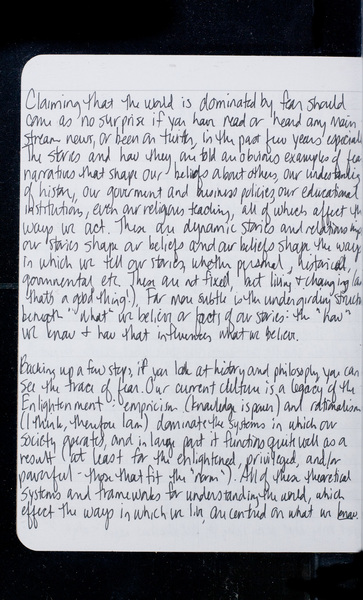 Claiming that the world is dominated by fear should
come as no surprise if you have read or heard any main
stream news, or been on twitter, in the past few years especially
The stories and how they are told are obvious examples of fear
narratives that shape our beliefs about others, our understanding
of history, our goverment and business policies, our educational
institutions, even our religious teaching, all of which affect the
ways we act. These are dynamic stories and relationships
our stories shape our beliefs and our beliefs shape the way
in which we tell our stories, whether personal, historical,
governmental, etc. These are not fixed, but living & changing (and
that's a good thing!). Far more subtle is the undergirding structure
beneath "what" we believe or facts of our stories: the "how"
we know & how that influences what we believe.
Backing up a few steps, if you look at history and philosophy you can
see the traces of fear. Our current culture is a legacy of the
Enlightenment: empiricism (knowledge is power) and rationalism
(I think, therefore I am) dominate the systems in which our
society operates, and in large part it functions quite well as a
result (at least for the enlightened, privileged, and/or
powerful - those that fit the "norm"). All of these theoretical
systems and frameworks for understanding the world, which
effect the ways in which we live, are centred on what we know.